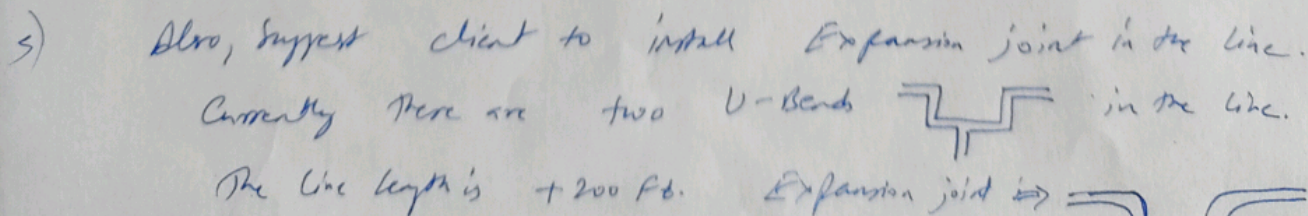 5) Also, Suggest client to install Expansion joint in the line.
Currently there are two U-Bends in the line.
The line length is +200 Ft. Expansion joint ⇒